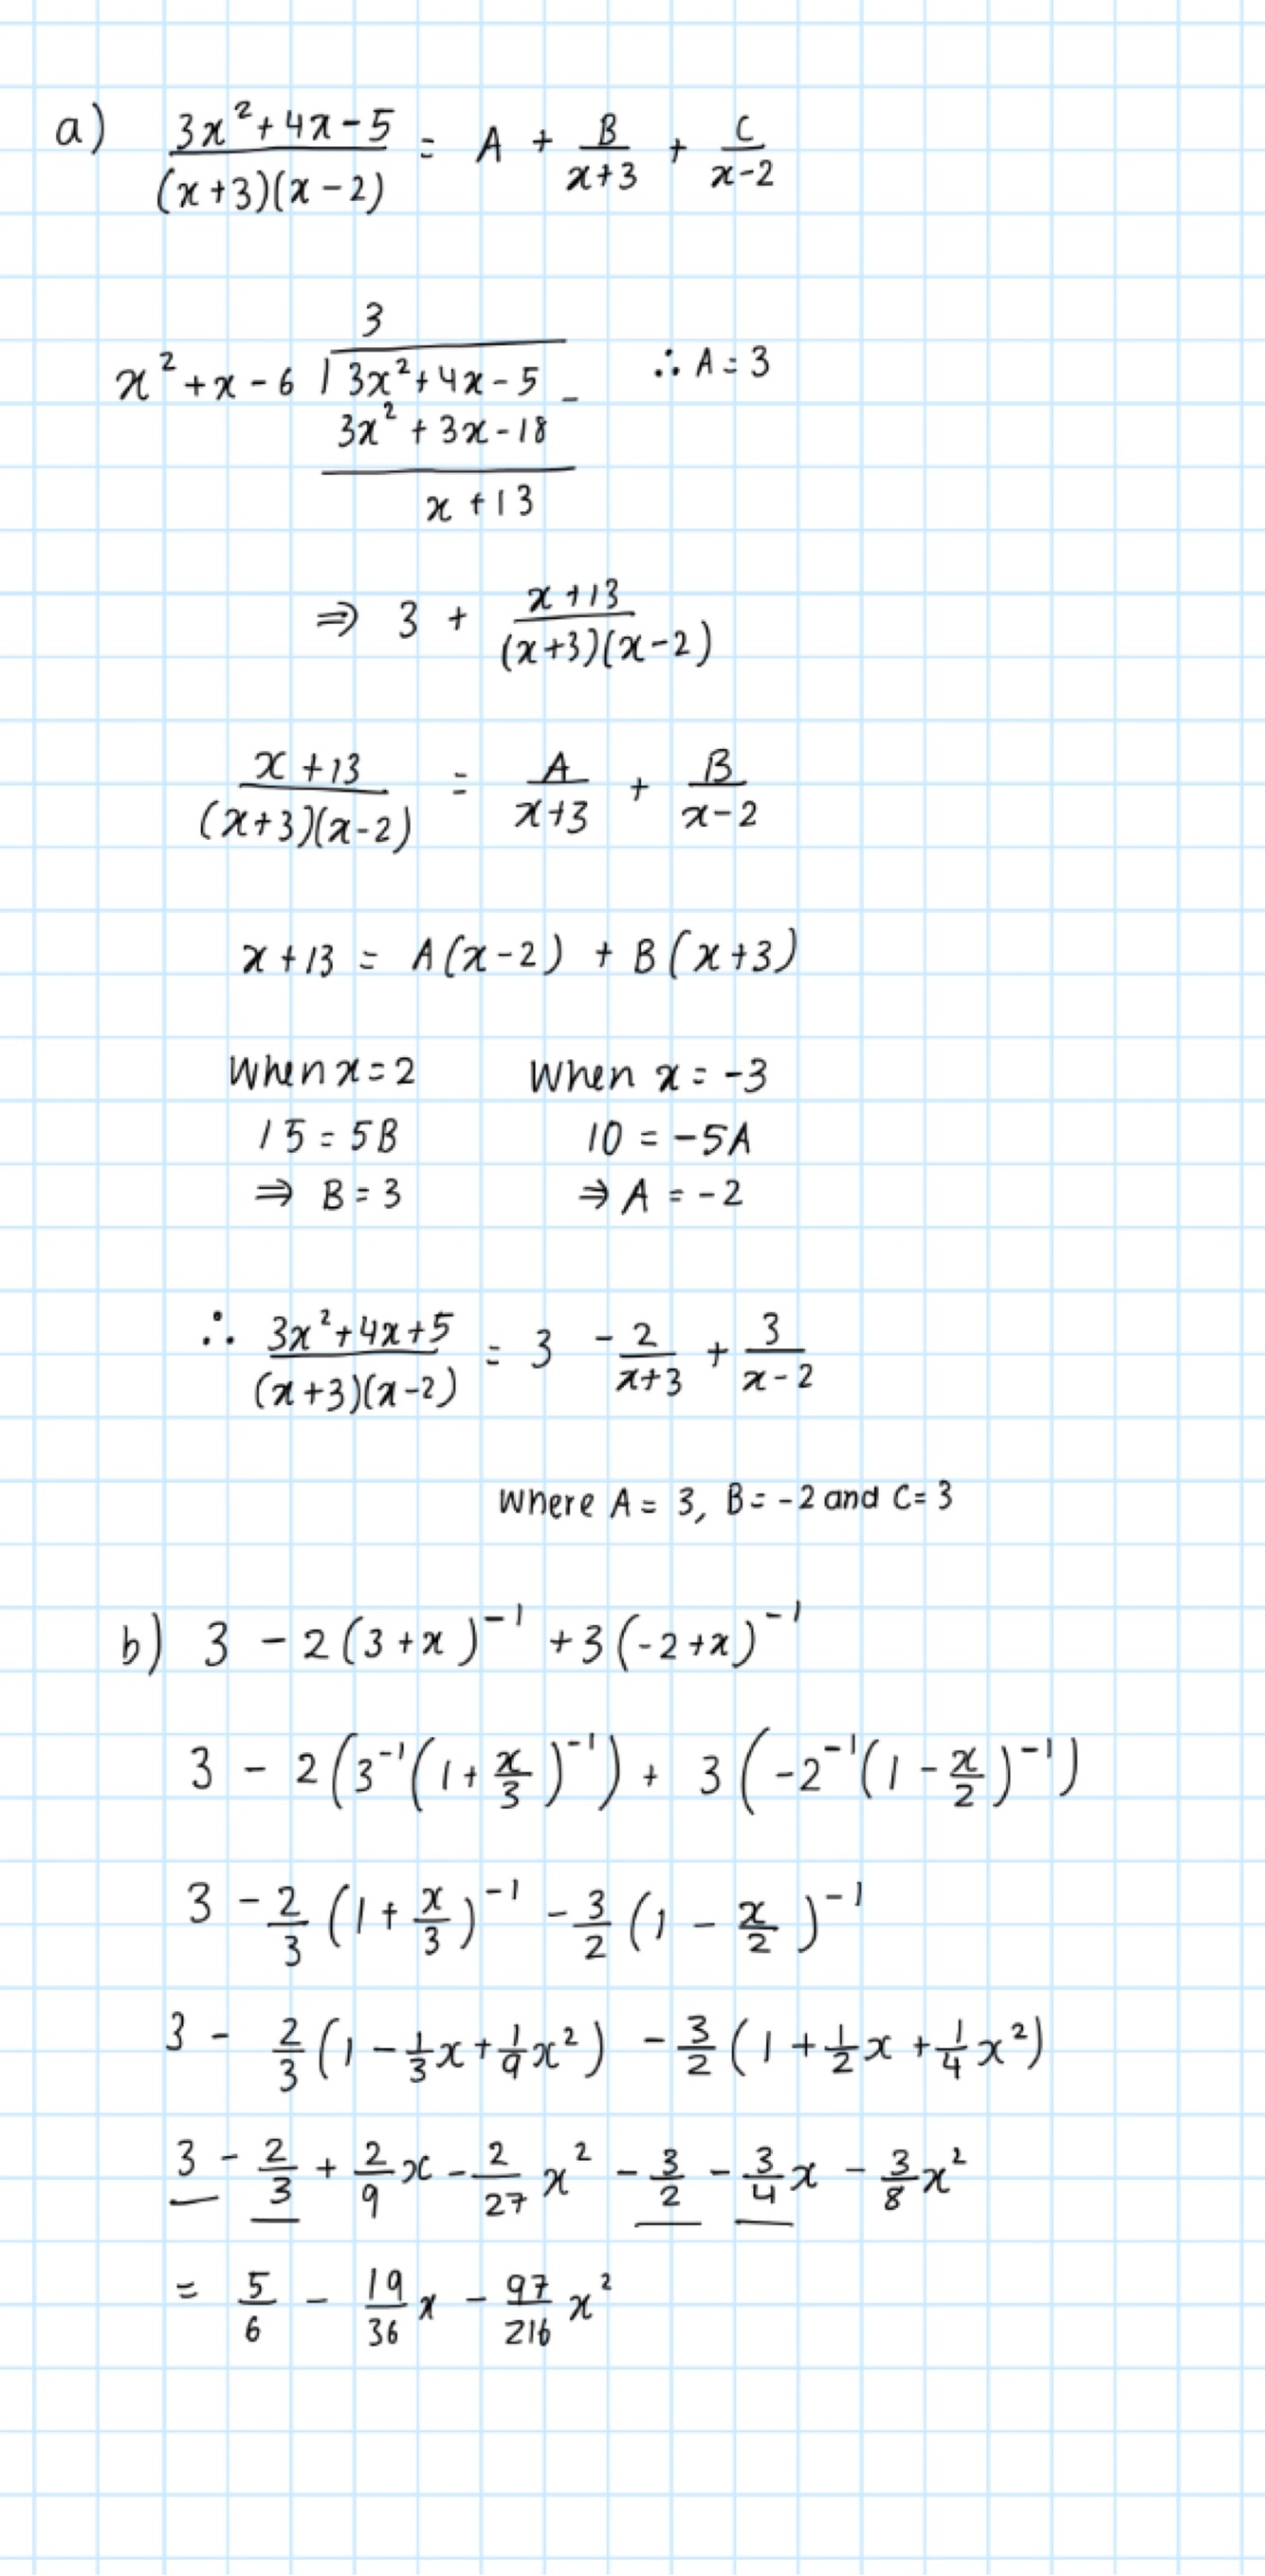 a) (3x²+4x-5)/((x+3)(x-2)) = A + B/(x+3) + C/(x-2)
3
x²+x-6 | 3x²+4x-5 -    ∴ A = 3
3x²+3x-18
x+13
⇒ 3 + (x+13)/((x+3)(x-2))
(x+13)/((x+3)(x-2)) = A/(x+3) + B/(x-2)
x+13 = A(x-2) + B(x+3)
When x=2    When x = -3
15 = 5B    10 = -5A
⇒ B = 3    ⇒ A = -2
∴ (3x²+4x+5)/((x+3)(x-2)) = 3 - 2/(x+3) + 3/(x-2)
where A = 3, B = -2 and C = 3
b) 3 - 2(3+x)⁻¹ + 3(-2+x)⁻¹
3 - 2(3⁻¹(1+x/3)⁻¹) + 3(-2⁻¹(1-x/2)⁻¹)
3 - 2/3(1+x/3)⁻¹ - 3/2(1-x/2)⁻¹
3 - 2/3(1-1/3x+1/9x²) - 3/2(1+1/2x+1/4x²)
3 - 2/3 + 2/9x - 2/27x² - 3/2 - 3/4x - 3/8x²
= 5/6 - 19/36x - 97/216x²